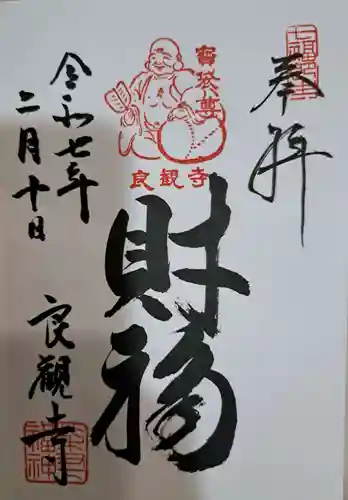 奉拝
寳袋尊
良観寺
財福
令和七年
二月十日
良観寺